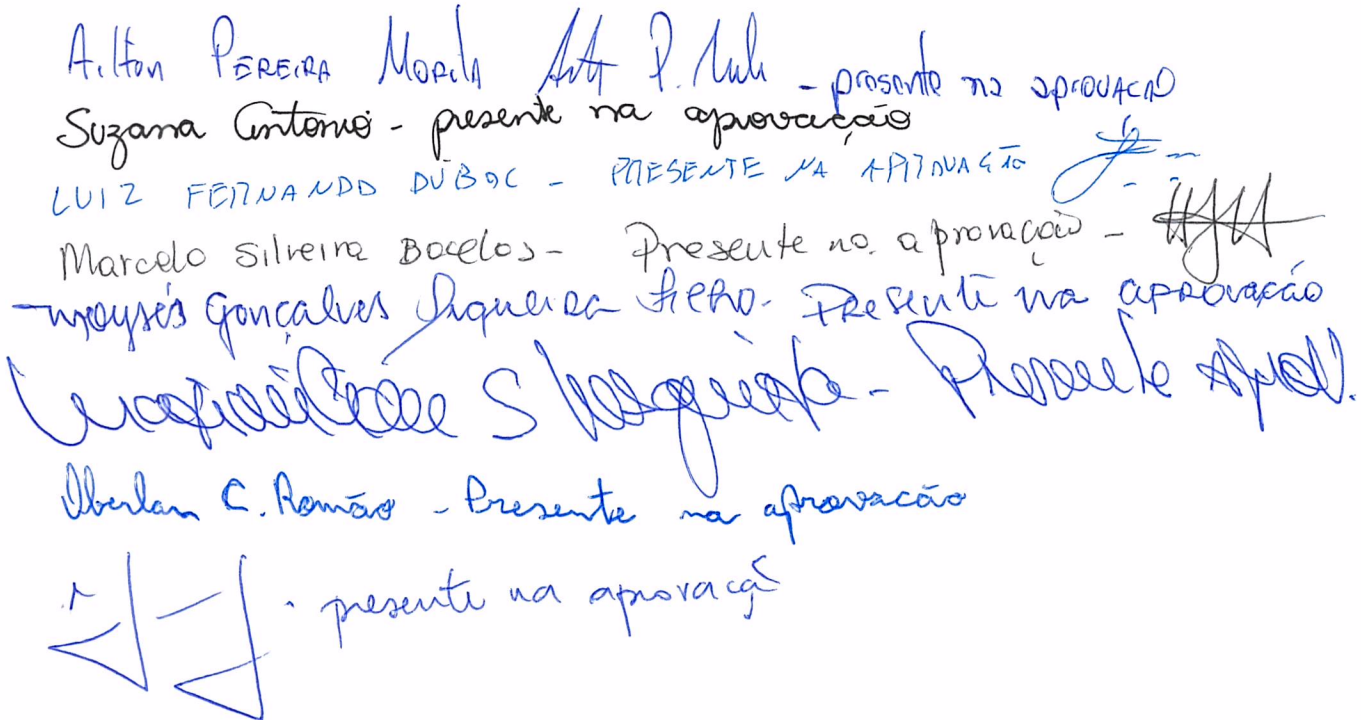 Ailton PEREIRA Morila - presente na aprovação
Suzana Antonio - presente na aprovação
LUIZ FERNANDO DUBOC - PRESENTE NA APROVAÇÃO
Marcelo Silveira Bacelos - Presente na aprovação -
Moysés Gonçalves Siqueira Filho. Presente na aprovação
S Mesquita - Presente Aprov.
Oberlan C. Romão - Presente na aprovação
- presente na aprovaçã